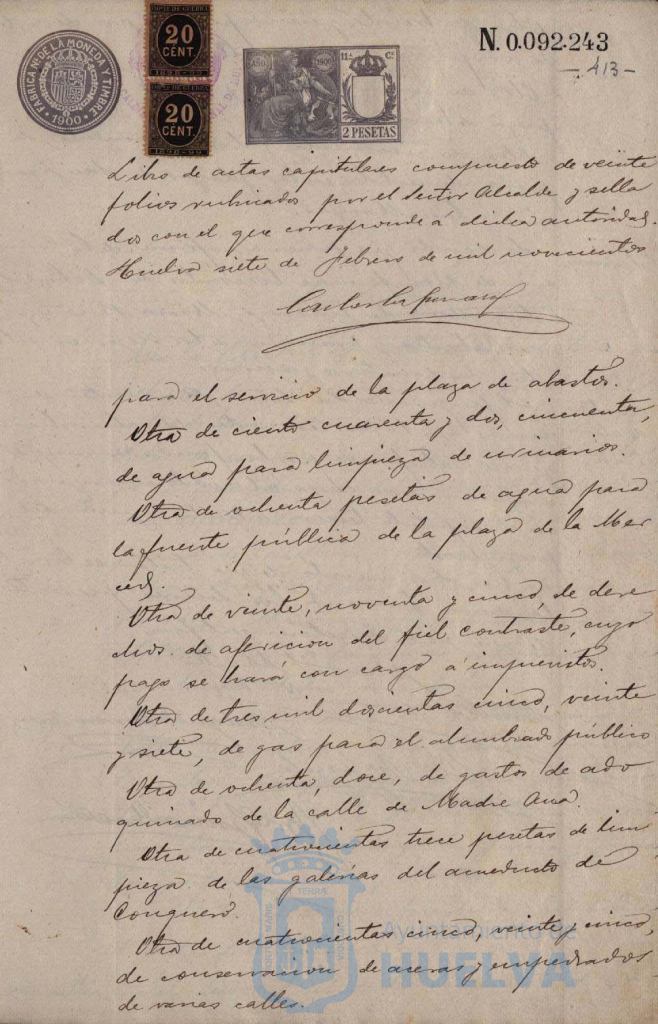 FABRICA Nl. DE LA MONEDA Y TIMBRE
1900
20
CENT.
1898-99
20
CENT.
1898-99
AÑO 1900
11ª Cª
2 PESETAS
N. 0.092.243
- 413 -
Libro de actas capitulares compuesto de veinte
folios rubricados por el Señor Alcalde y sella
dos con el que corresponde á dicha autoridad.
Huelva siete de Febrero de mil novecientos
para el servicio de la plaza de abastos.
Otra de ciento cuarenta y dos, cincuenta,
de agua para limpieza de urinarios.
Otra de ochenta pesetas de agua para
la fuente pública de la plaza de la Mer
ced.
Otra de veinte, noventa y cinco, de dere
chos de afericion del fiel contraste, cuyo
pago se hará con cargo á imprevistos.
Otra de tres mil doscientas cinco, veinte
y siete, de gas para el alumbrado público
Otra de ochenta, doce, de gastos de ado
quinado de la calle de Madre Ana.
Otra de cuatrocientas trece pesetas de lim
pieza de las galerías del acueducto de
Conquero.
Otra de cuatrocientas cinco, veinte y cinco,
de conservacion de aceras y empedrados
de varias calles.
Ayuntamiento de
HUELVA